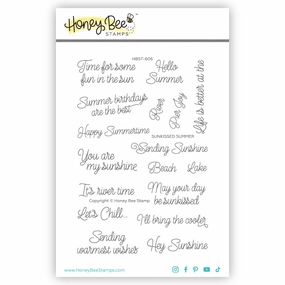 Honey Bee
STAMPS
HBST-606
Time for some
fun in the sun
Hello
Summer
Life is better at the
Summer birthdays
are the best
River
Pier
Joy
Happy Summertime
SUNKISSED SUMMER
Sending Sunshine
You are
my sunshine
Beach
Lake
It's river time
Copyright © Honey Bee Stamp
May your day
be sunkissed
Let's Chill...
I'll bring the cooler
Sending
warmest wishes
Hey Sunshine
www.HoneyBeeStamps.com